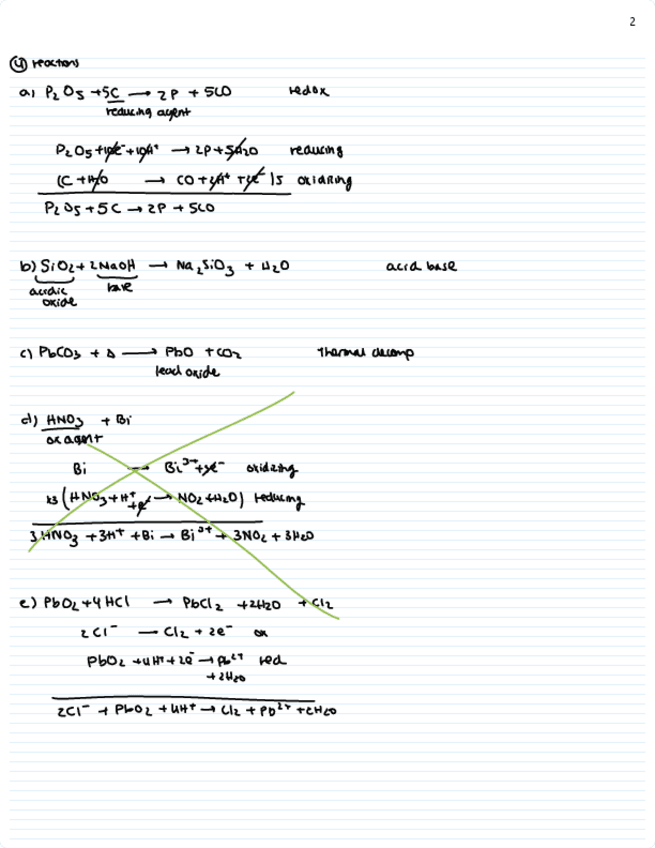 2
④ reactions
a) P₂O₅ + 5C → 2P + 5CO redox
reducing agent
P₂O₅ + 10e⁻ + 10H⁺ → 2P + 5H₂O reducing
(C + H₂O → CO + 2H⁺ + 2e⁻)5 oxidizing
P₂O₅ + 5C → 2P + 5CO
b) SiO₂ + 2NaOH → Na₂SiO₃ + H₂O acid base
acidic base
oxide
c) PbCO₃ + Δ → PbO + CO₂ thermal decomp
lead oxide
d) HNO₃ + Bi
ox agent
Bi → Bi³⁺ + 3e⁻ oxidizing
x3 (HNO₃ + H⁺ + e⁻ → NO₂ + H₂O) reducing
3HNO₃ + 3H⁺ + Bi → Bi³⁺ + 3NO₂ + 3H₂O
e) PbO₂ + 4HCl → PbCl₂ + 2H₂O + Cl₂
2Cl⁻ → Cl₂ + 2e⁻ ox
PbO₂ + 4H⁺ + 2e⁻ → Pb²⁺ red
+ 2H₂O
2Cl⁻ + PbO₂ + 4H⁺ → Cl₂ + Pb²⁺ + 2H₂O